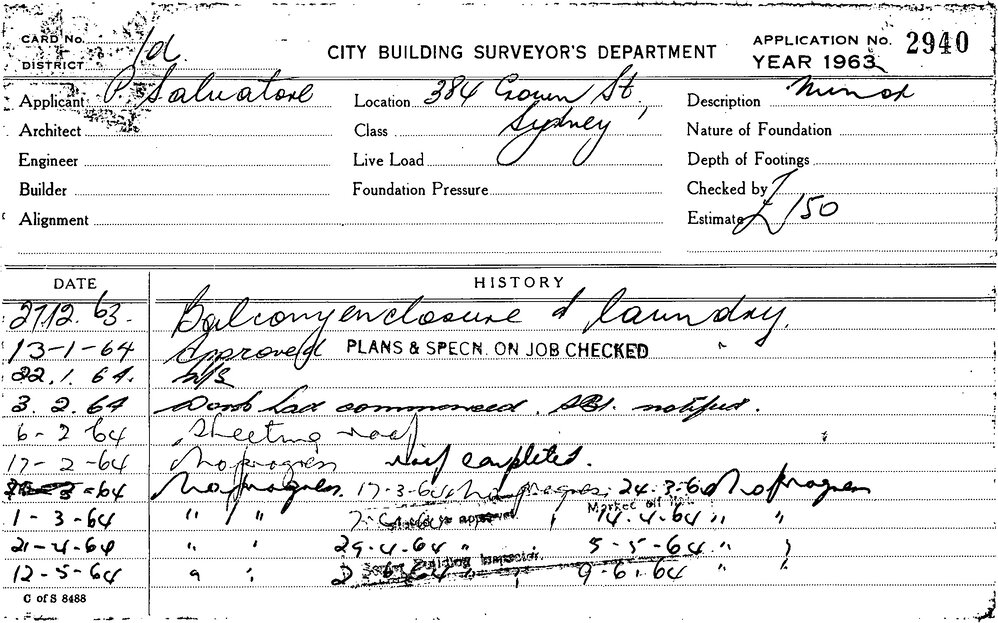 CARD No.
1d
DISTRICT
CITY BUILDING SURVEYOR'S DEPARTMENT
APPLICATION No. 2940
YEAR 1963
Applicant P. Salvatore
Location 384 Crown St,
Description Minor
Architect
Class Sydney
Nature of Foundation
Engineer
Live Load
Depth of Footings
Builder
Foundation Pressure
Checked by
Alignment
Estimate £150
DATE HISTORY
27.12.63. Balcony enclosure & laundry.
13-1-64 Approved PLANS & SPECN. ON JOB CHECKED
22.1.64. N/S
3.2.64 Work had commenced. notified.
6-2-64 Sheeting roof
17-2-64 No progress roof completed.
-64 No progress. 17-3-64 No progress. 24.3.64 No progress
1-3-64 " " 14.4.64 " "
21-4-64 " " 29.4.64 " " 5-5-64 " "
12-5-64 " " 9-6-64 " "
C of S 8488